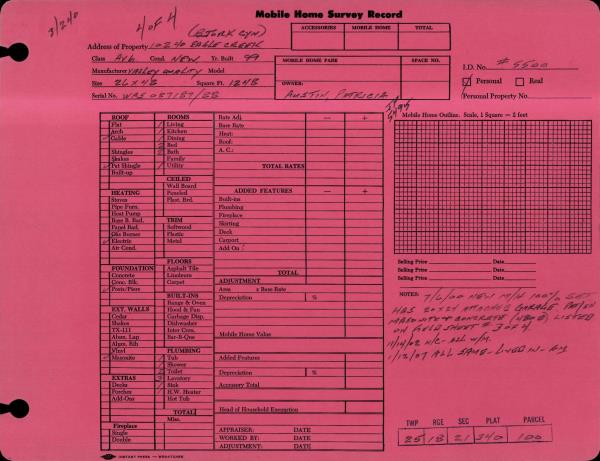 Mobile Home Survey Record
3/240
4 of 4
(BJORK CYN)
ACCESSORIES MOBILE HOME TOTAL
Address of Property 10240 EAGLE CREEK
Class Avg. Cond. NEW Yr. Built 99
Manufacturer VALLEY QUALITY Model
Size 26x48 Square Ft. 1248
Serial No.
MOBILE HOME PARK SPACE NO.
OWNER:
AUSTIN, PATRICIA
I.D. No. #5500
Personal Real
Personal Property No.
ROOF
Flat
Arch
Gable
Shingles
Shakes
Pat Shingle
Built-up
HEATING
Stoves
Pipe Furn.
Heat Pump
Base B. Rad.
Panel Rad.
Gas Burner
Electric
Air Cond.
FOUNDATION
Concrete
Conc. Blk.
Posts/Piers
EXT. WALLS
Cedar
Shakes
TX-111
Alum. Lap
Alum. Rib
Vinyl
Masonite
EXTRAS
Decks
Porches
Add-Ons
Fireplace
Single
Double
ROOMS
1 Living
1 Kitchen
1 Dining
3 Bed
2 Bath
Family
1 Utility
CEILED
Wall Board
Paneled
Plast. Brd.
TRIM
Softwood
Plastic
Metal
FLOORS
Asphalt Tile
Linoleum
Carpet
BUILT-INS
Range & Oven
Hood & Fan
Garbage Disp.
Dishwasher
Inter Com.
Bar-B-Que
PLUMBING
1 Tub
1 Shower
2 Toilet
3 Lavatory
1 Sink
1 H.W. Heater
Hot Tub
TOTAL
Misc.
Rate Adj. — +
Base Rate
Heat:
Roof:
A. C.:
TOTAL RATES
ADDED FEATURES — +
Built-ins
Plumbing
Fireplace
Skirting
Deck
Carport
Add On:
TOTAL
ADJUSTMENT
Area x Base Rate
Depreciation %
Mobile Home Value
Added Features
Depreciation %
Accessory Total
Head of Household Exemption
APPRAISER: DATE
WORKED BY: DATE
ADJUSTMENT: DATE
Mobile Home Outline. Scale, 1 Square — 2 feet
Selling Price Date
Selling Price Date
Selling Price Date
NOTES: 7/6/00 NEW M/H 100%
HAS 20x24 GARAGE
MASONITE CONCRETE LISTED
ON FIELD SHEET # 3 of 4
11/14/02 N/C - ALL W/M.
1/12/07 ALL SAME - LIVED IN -
TWP RGE SEC PLAT PARCEL
25 18 21 340 100
INSTANT PRESS